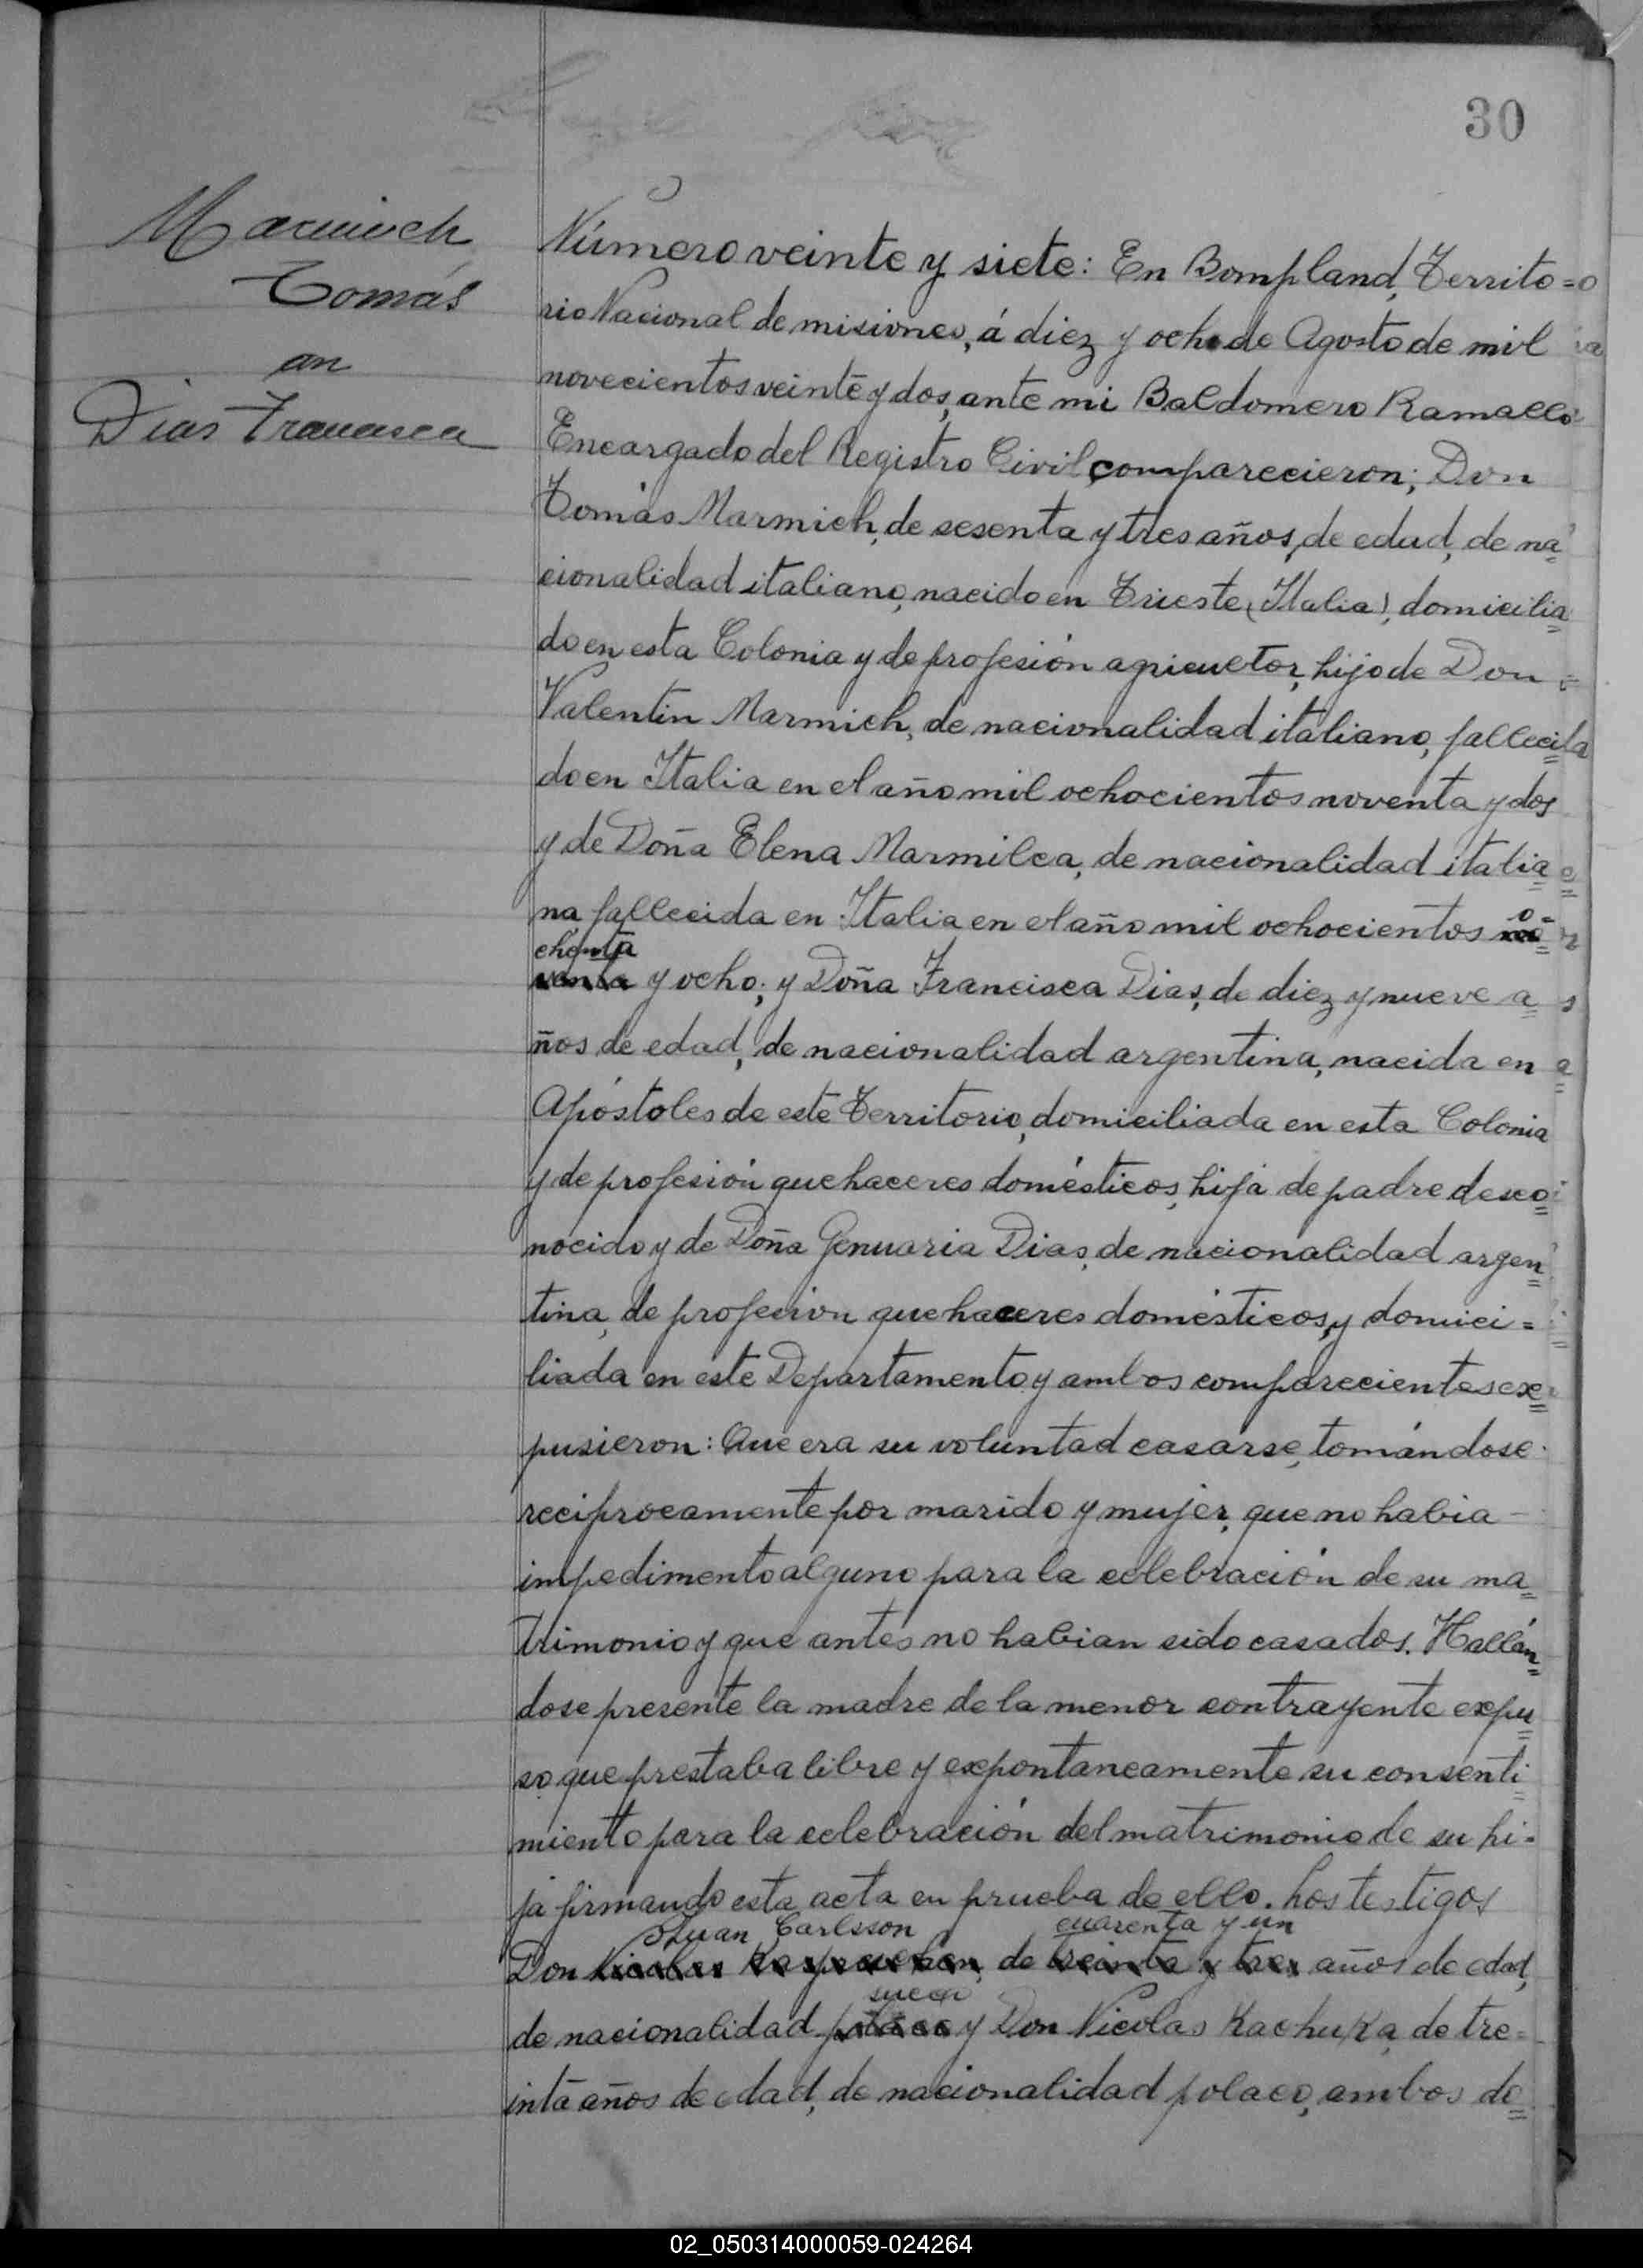 30
Marmich
Tomás
an
Dias Francisca
Número veinte y siete: En Bompland, Territo=
rio Nacional de misiones, á diez y ocho de Agosto de mil
novecientos veinte y dos, ante mi Baldomero Ramallo
Encargado del Registro Civil comparecieron; Don
Tomás Marmich, de sesenta y tres años, de edad, de na
cionalidad italiano, nacido en Trieste (Italia), domicilia
do en esta Colonia y de profesión agricultor, hijo de Don
Valentin Marmich, de nacionalidad italiano, falleci
do en Italia en el año mil ochocientos noventa y dos
y de Doña Elena Marmilca, de nacionalidad italia
na, fallecida en Italia en el año mil ochocientos o-
chenta
y ocho; y Doña Francisca Dias, de diez y nueve a
ños de edad, de nacionalidad argentina, nacida en
Apóstoles de este Territorio, domiciliada en esta Colonia
y de profesión quehaceres domésticos, hija de padre desco
nocido y de Doña Genuaria Dias, de nacionalidad argen
tina, de profesion quehaceres domésticos, y domici=
liada en este Departamento y ambos comparecientes ex
pusieron: Que era su voluntad casarse, tomándose
reciprocamente por marido y mujer, que no habia
impedimento alguno para la celebración de su ma
trimonio y que antes no habian sido casados. Hallán
dose presente la madre de la menor contrayente expu
so que prestaba libre y expontaneamente su consenti
miento para la celebración del matrimonio de su hi=
ja firmando esta acta en prueba de ello. Los testigos
Juan Carlsson cuarenta y un
Don de años de edad,
sueco
de nacionalidad y Don Nicolas Kachuka, de tre=
inta años de edad, de nacionalidad polaco, ambos de
02_050314000059-024264